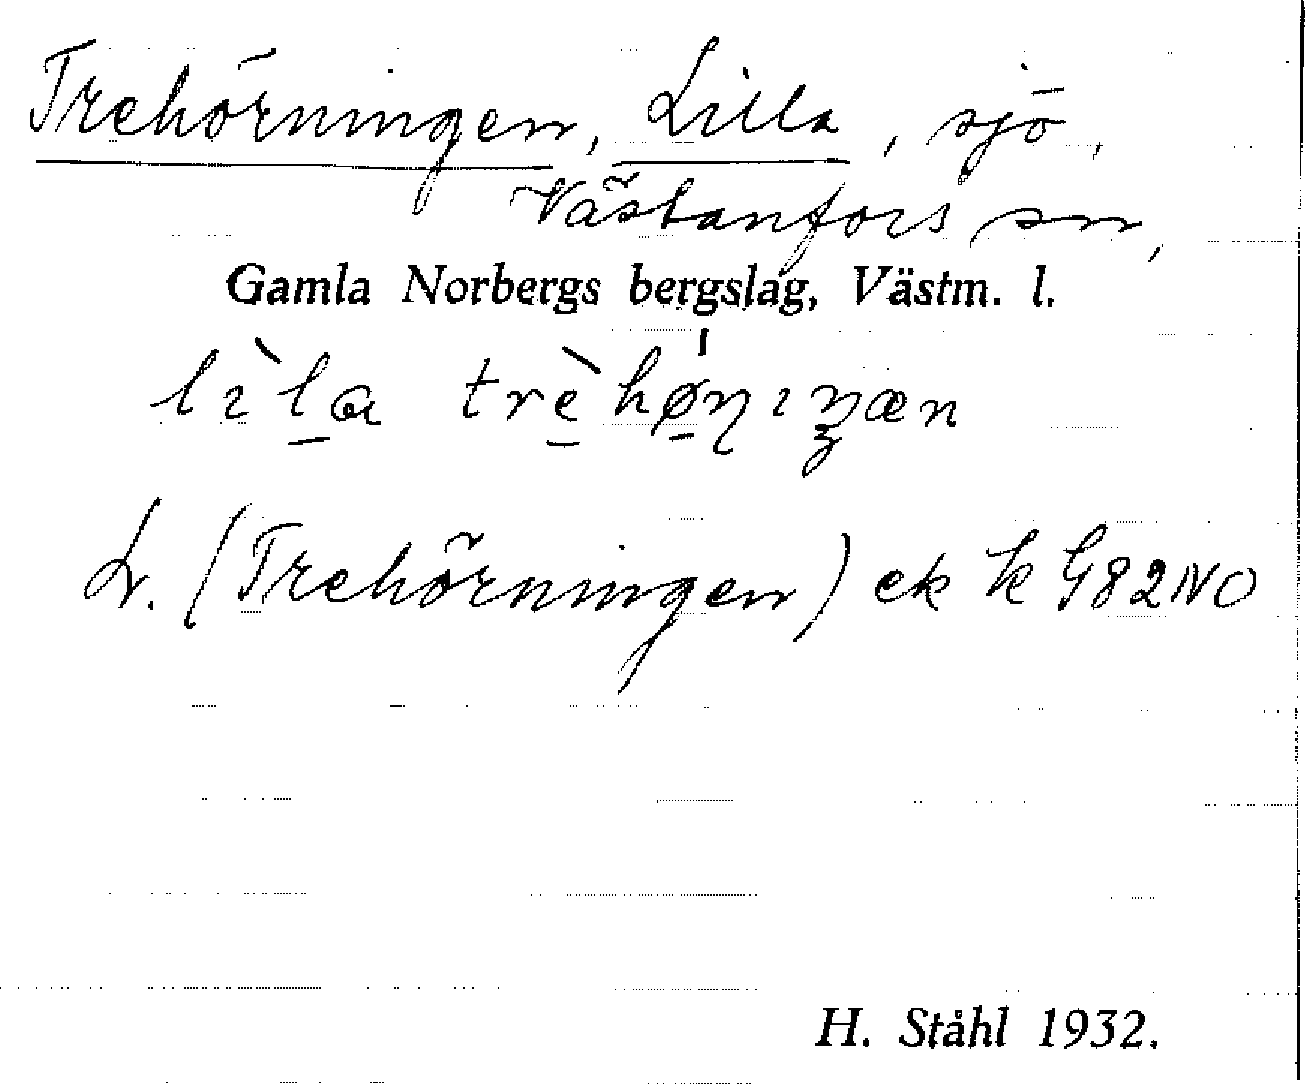 Trehörningen, Lilla, sjö,
Västanfors sn,
Gamla Norbergs bergslag, Västm. l.
lìla trèhø̍ɳıŋæn
L. (Trehörningen) ek k G82NO
H. Ståhl 1932.